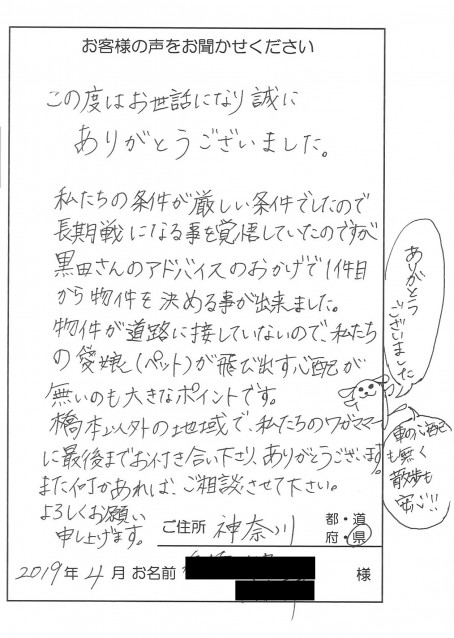 お客様の声をお聞かせください
この度はお世話になり誠に
ありがとうございました。
私たちの条件が厳しい条件でしたので
長期戦になる事を覚悟していたのですが
黒田さんのアドバイスのおかげで1件目
から物件を決める事が出来ました。
物件が道路に接していないので、私たち
の愛娘(ペット)が飛び出す心配が
無いのも大きなポイントです。
橋本以外の地域で、私たちのワガママ
に最後までお付き合い下さり、ありがとうございます。
また何かあれば、ご相談させて下さい。
よろしくお願い
申し上げます。
ご住所 神奈川 都・道
府・県
2019年4月 お名前 様
ありがとう
ございました
車の心配
も無く
散歩も
安心!!